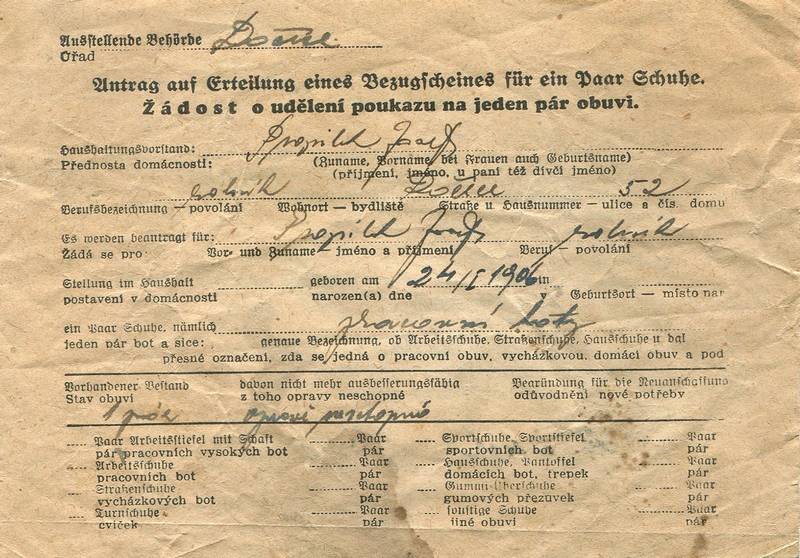 Ausstellende Behörde
Úřad
Antrag auf Erteilung eines Bezugscheines für ein Paar Schuhe.
Žádost o udělení poukazu na jeden pár obuvi.
Haushaltungsvorstand: Josef
Přednosta domácnosti: (Zuname, Vorname, bei Frauen auch Geburtsname)
(příjmení, jméno, u paní též dívčí jméno)
rolník 52
Berufsbezeichnung — povolání Wohnort — bydliště Straße u Hausnummer — ulice a čís. domu
Es werden beantragt für: Josef rolník
Žádá se pro: Vor- und Zuname — jméno a příjmení Beruf — povolání
Stellung im Haushalt geboren am 24/I 1906 in
postavení v domácnosti narozen(a) dne v Geburtsort — místo nar
ein Paar Schuhe, nämlich pracovní boty
jeden pár bot a sice: genaue Bezeichnung, ob Arbeitsschuhe, Straßenschuhe, Hausschuhe u dal
přesné označení, zda se jedná o pracovní obuv, vycházkovou, domácí obuv a pod
Vorhandener Bestand davon nicht mehr ausbesserungsfähig Begründung für die Neuanschaffung
Stav obuvi z toho opravy neschopné odůvodnění nové potřeby
1 pár opravy neschopné
Paar Arbeitsstiefel mit Schaft Paar Sportschuhe, Sportstiefel Paar
pár pracovních vysokých bot pár sportovních bot pár
Arbeitsschuhe Paar Hausschuhe, Pantoffel Paar
pracovních bot pár domácích bot, trepek pár
Straßenschuhe Paar Gummi-Überschuhe Paar
vycházkových bot pár gumových přezuvek pár
Turnschuhe Paar sonstige Schuhe Paar
cviček pár jiné obuvi pár